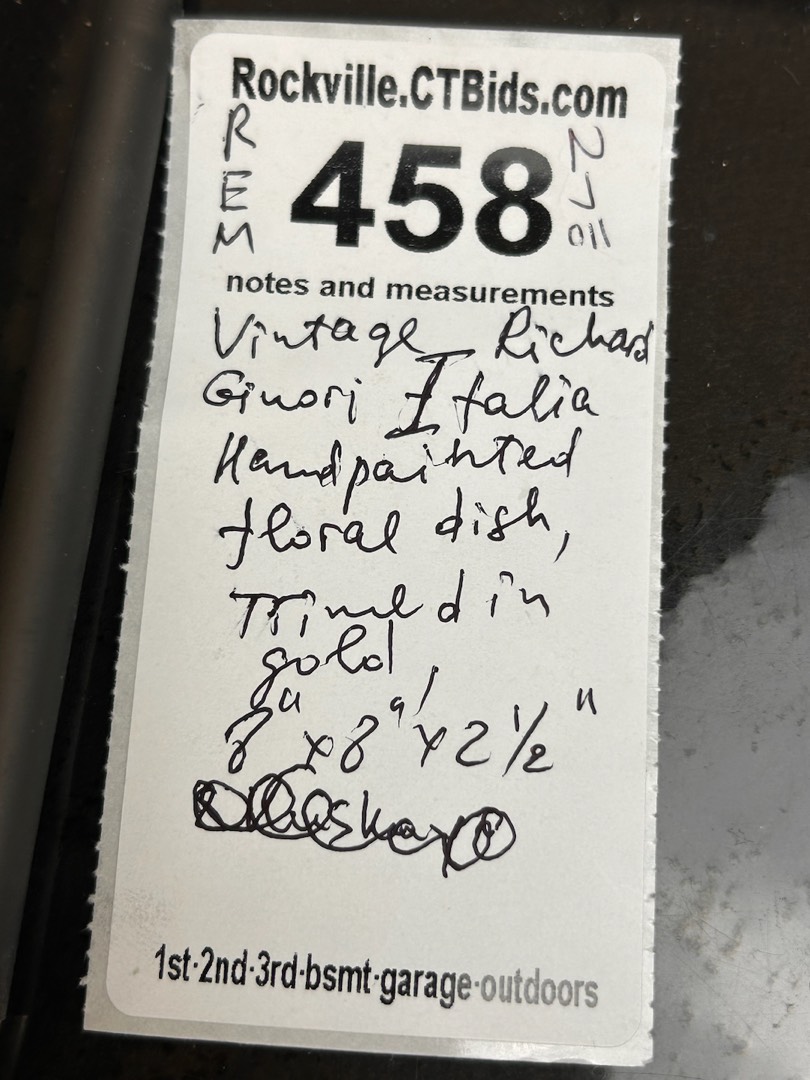 Rockville.CTBids.com
REM
458
notes and measurements
Vintage Richard
Ginori Italia
Handpainted
floral dish,
Trimed in
gold,
8" x 8" x 2 1/2"
1st·2nd·3rd·bsmt·garage·outdoors